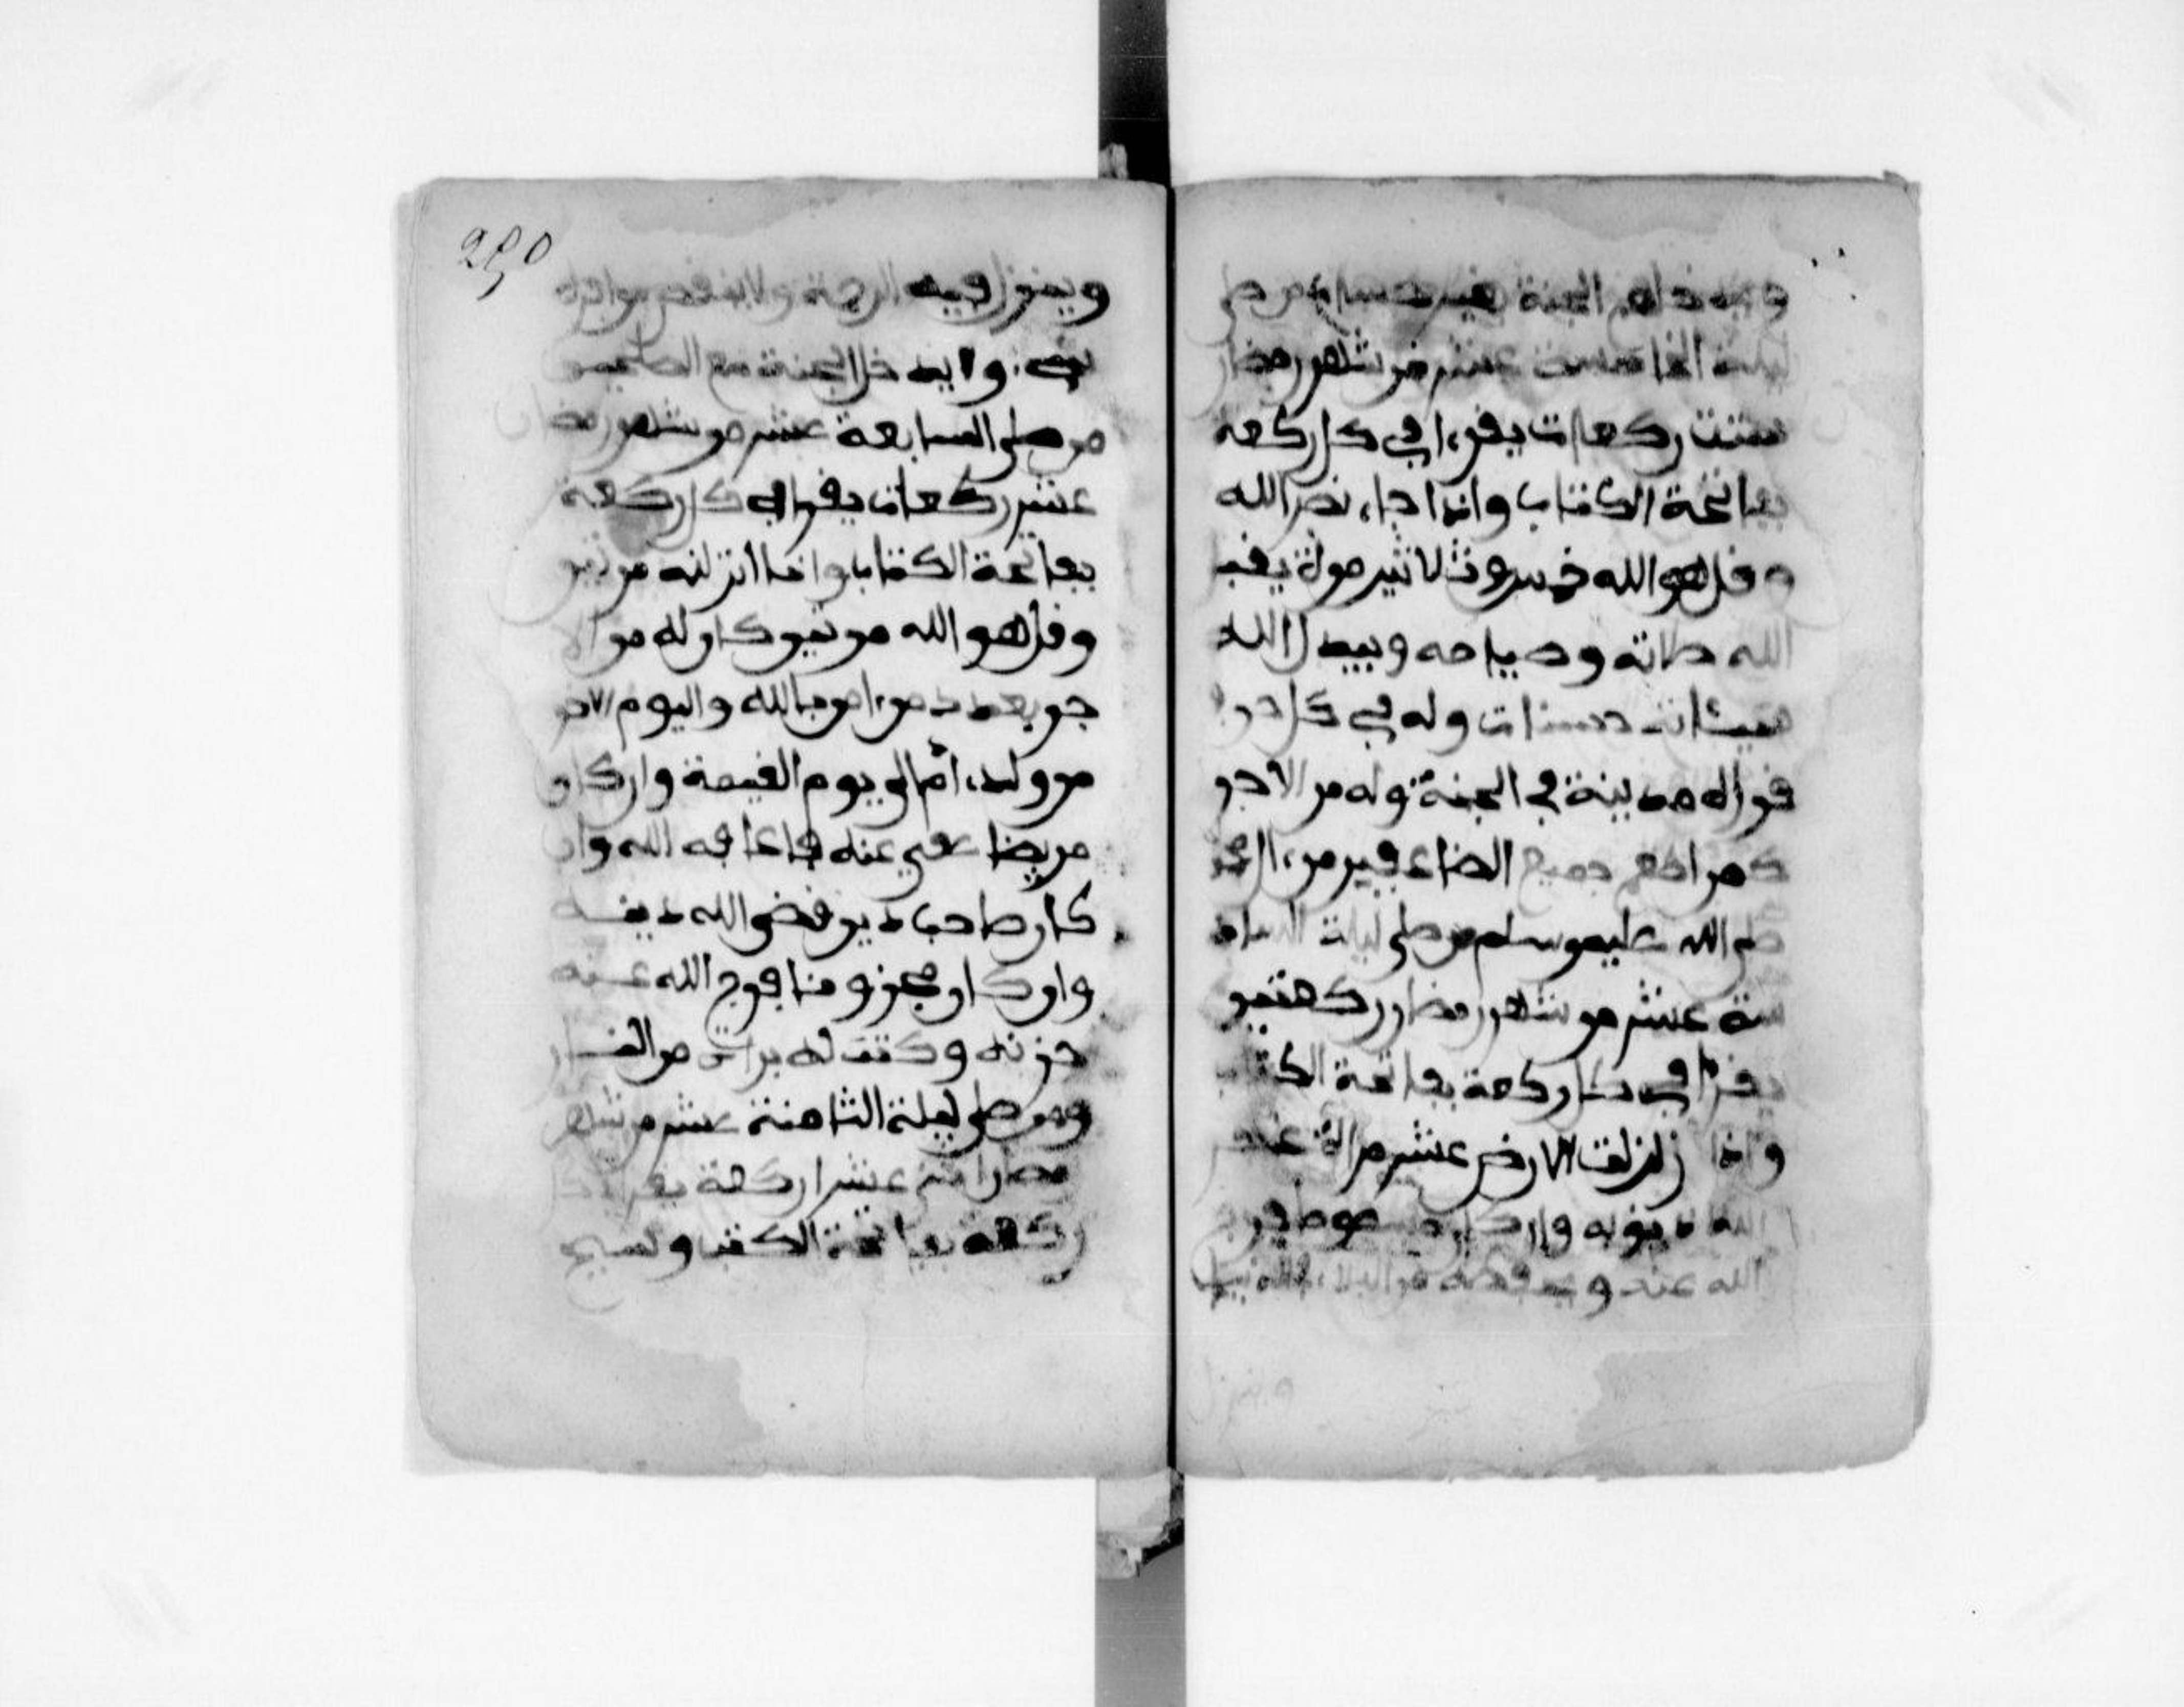 الجنة بغير حساب من صلى
ليلة الخامسة عشر من شهر رمضان
ست ركعات يقرا في كل ركعة
بفاتحة الكتاب واذا جاء نصر الله
وقل هو الله خمس وثلاثين مرة يقبل
الله صلاته وصيامه ويبدل الله
سيئاته حسنات وله في كل حرف
قراه مدينة في الجنة وله من الاجر
كمن اطعم جميع الضاعفين من
صلى الله عليه وسلم من صلى ليلة الساد
سة عشر من شهر رمضان ركعتين
يقرا في كل ركعة بفاتحة الكتاب
واذا زلزلت الارض عشر مراة غفر
الله ذنوبه وان كان
الله عنه ويحفظه من البلاء
250
وينزل فيه الرحمة ولا ينقص من اجره
شيء ويدخل الجنة مع الصالحين
من صلى السابعة عشر من شهر رمضان
عشر ركعات يقرا في كل ركعة
بفاتحة الكتاب وانا انزلنه مرتين
وقل هو الله مرتين كان له من الا
جر بعدد من امن بالله واليوم الاخر
من ولد ادم الى يوم القيمة وان كان
مريضا عفي عنه فاعافه الله وان
كان صاحب دين قضى الله دينه
وان كان محزونا فرج الله عنه
حزنه وكتب له براة من النار
ومن صلى ليلة الثامنة عشر من شهر
رمضان عشر ركعة يقرا
ركعة بفاتحة الكتب